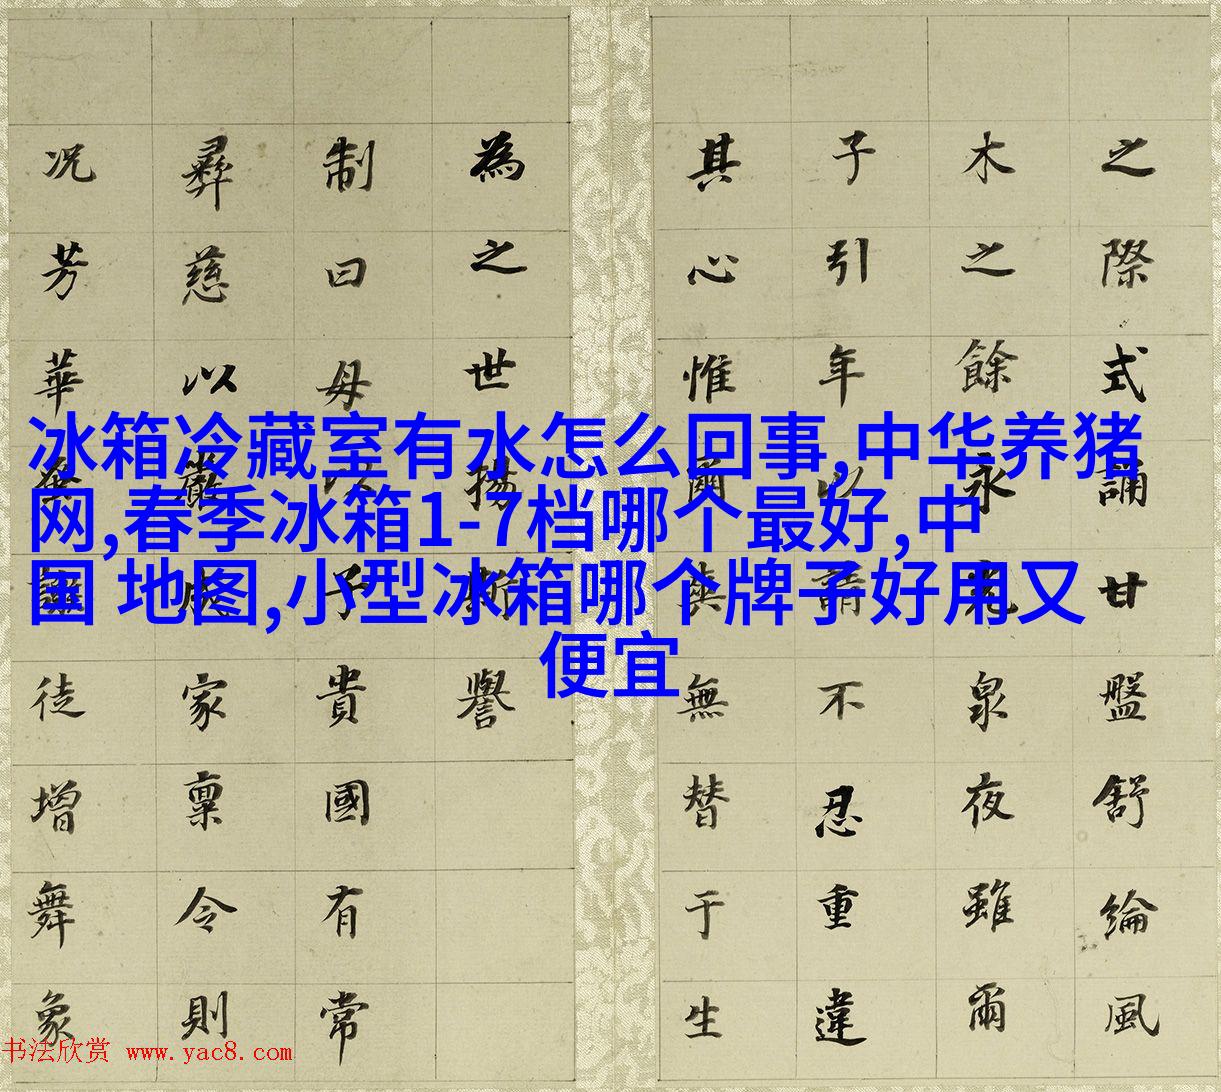 冰箱冷藏室有水怎么回事,中华养猪
网,春季冰箱1-7档哪个最好,中
国 地图,小型冰箱哪个牌子好用又
便宜
之際式誦甘盤舒綸風
木之餘永泉夜雖爾
子引年以請不忍重違
其心惟爾奭無替于生
為之世揚斯譽
制曰母以子貴國有常
彝慈以嚴成家稟令則
况芳華無徒增舞象
书法欣赏 www.yac8.com